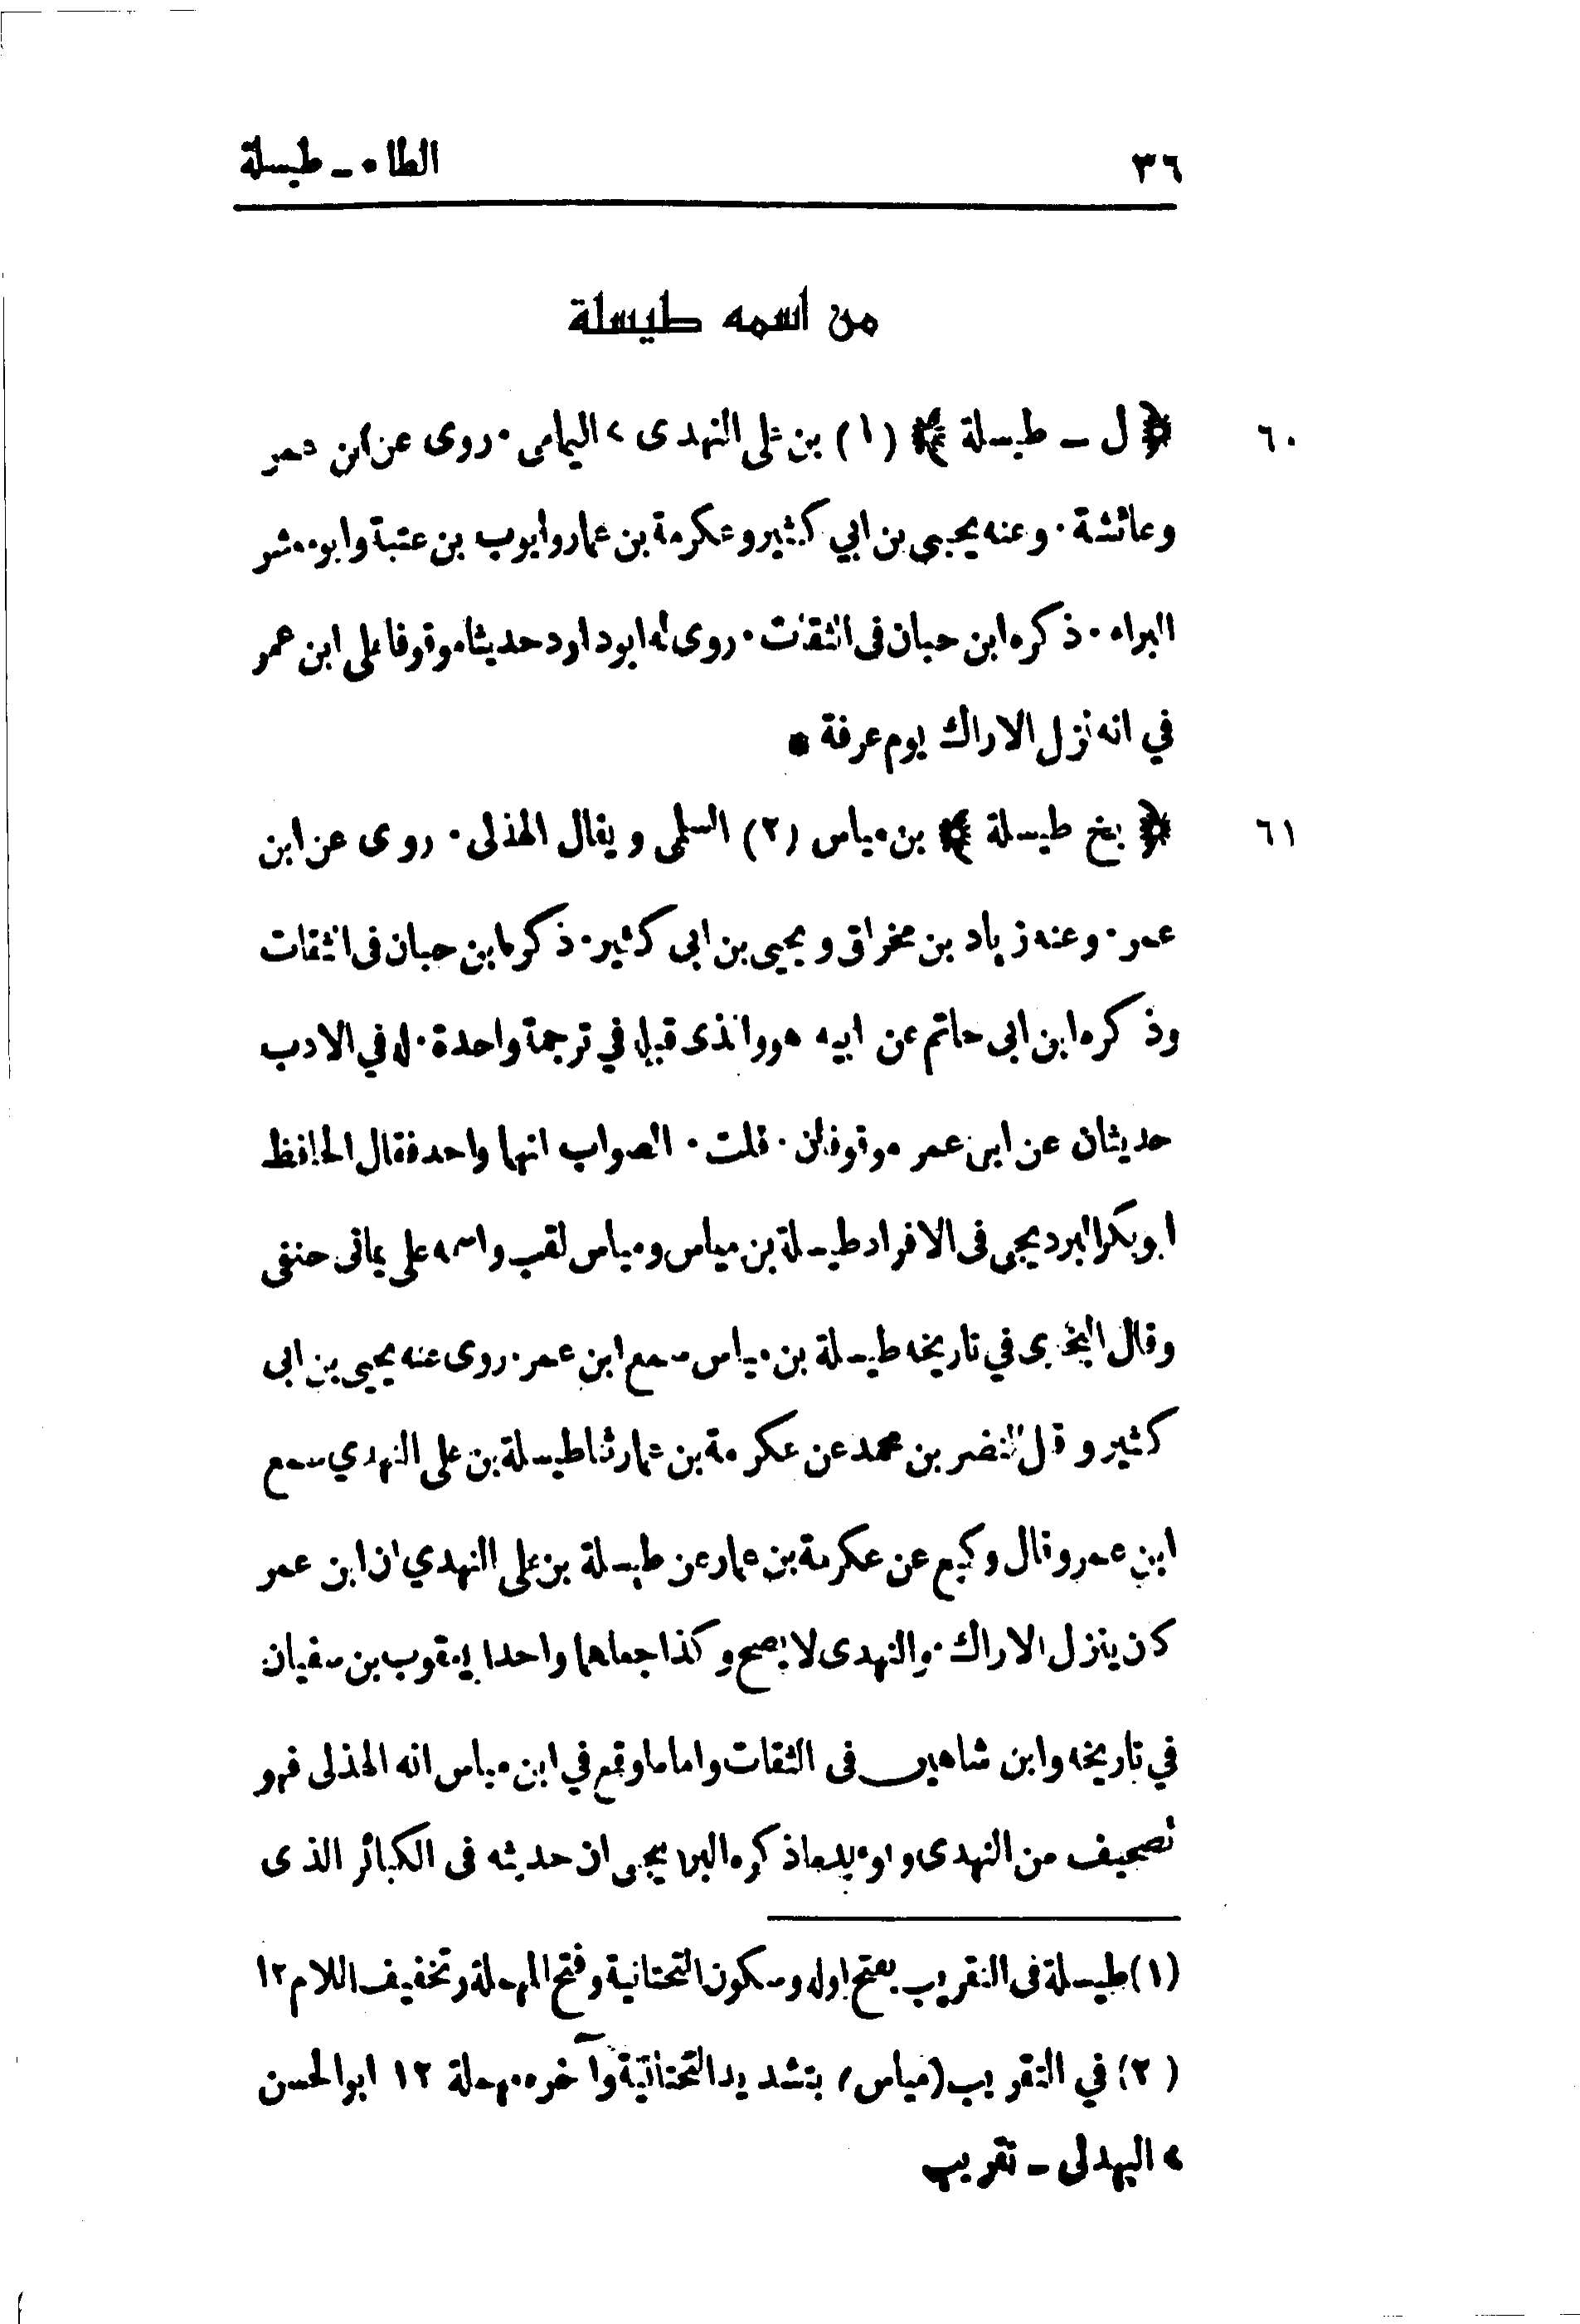 ٣٦
الطاء - طيسلة
من اسمه طيسلة
٦٠ ﴿ ل - طيسلة ﴾ (١) بن علي النهدى > اليمامى. روى عن ابن عمر
وعائشة. وعنه يحيى بن ابي كثير وعكرمة بن عمار وايوب بن عتبة وابو معشر
البراء. ذكره ابن حبان فى الثقات. روى له ابوداود حديثا موقوفا على ابن عمر
في انه نزل الاراك يوم عرفة *
٦١ ﴿ بخ طيسلة ﴾ بن مياس (٢) السلمى ويقال الهذلى. روى عن ابن
عمر. وعنه زياد بن مخراق ويحيى بن ابى كثير. ذكره ابن حبان فى الثقات
وذكره ابن ابى حاتم عن ابيه هو والذى قبله في ترجمة واحدة. له في الادب
حديثان عن ابن عمر موقوفان. قلت. الصواب انهما واحد فقال الحافظ
ابوبكر البرديجى فى الافراد طيسلة بن مياس ومياس لقب واسمه على يمانى حنفى
وقال البخارى في تاريخه طيسلة بن مياس سمع ابن عمر. روى عنه يحيى بن ابى
كثير وقال النضر بن محمد عن عكرمة بن عمار ثنا طيسلة بن على النهدي سمع
ابن عمر وقال وكيع عن عكرمة بن عمار عن طيسلة بن على النهدي ان ابن عمر
كان ينزل الاراك. والنهدى لا يصح وكذا جعلهما واحدا يعقوب بن سفيان
في تاريخه وابن شاهين فى الثقات واما ما وقع في ابن مياس انه الهذلى فهو
تصحيف من النهدى و يد ما ذكره البرديجى ان حديثه فى الكبائر الذى
(١) طيسلة فى التقريب بفتح اوله وسكون التحتانية وفتح المهملة وتخفيف اللام ١٢
(٢) في التقريب (مياس) بتشديد التحتانية وآخره مهملة ١٢ ابوالحسن
> البهدلى - تقريب